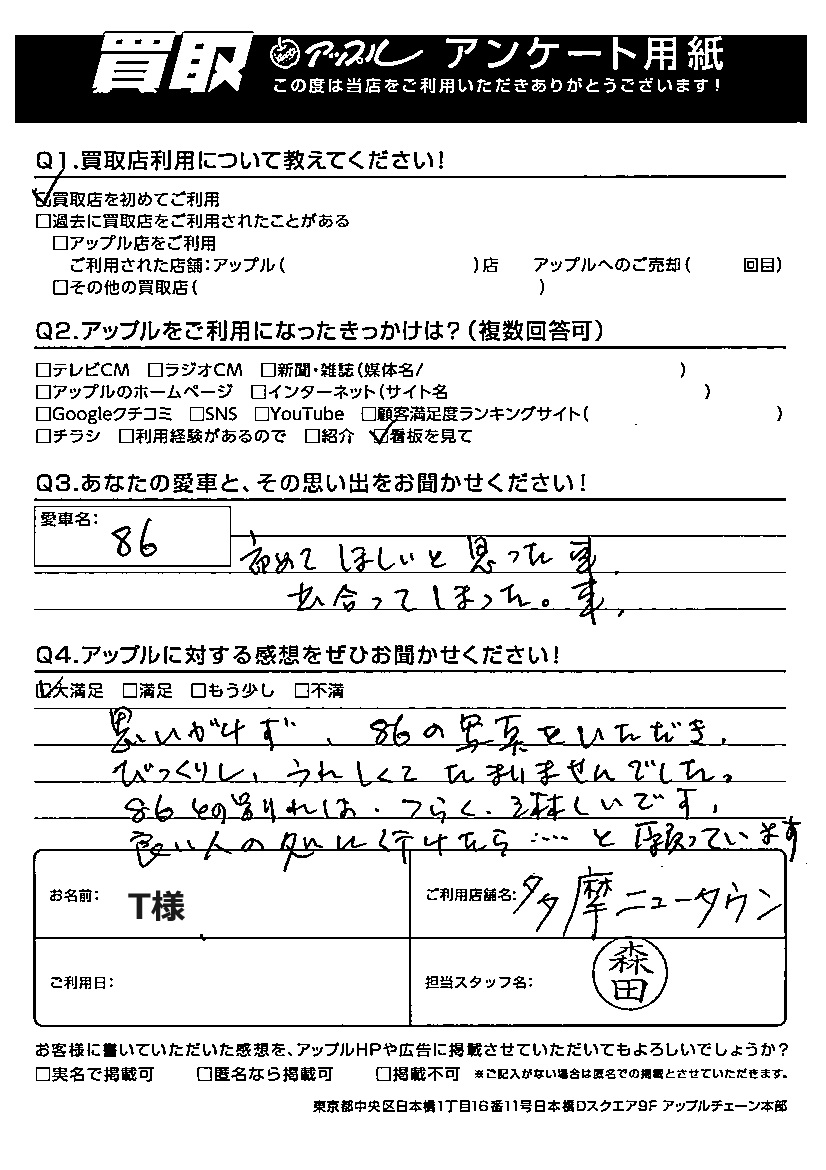 買取 アップル アンケート用紙
この度は当店をご利用いただきありがとうございます!
Q1.買取店利用について教えてください!
☑買取店を初めてご利用
□過去に買取店をご利用されたことがある
□アップル店をご利用
ご利用された店舗:アップル( )店 アップルへのご売却( 回目)
□その他の買取店( )
Q2.アップルをご利用になったきっかけは?(複数回答可)
□テレビCM □ラジオCM □新聞・雑誌(媒体名/ )
□アップルのホームページ □インターネット(サイト名 )
□Googleクチコミ □SNS □YouTube □顧客満足度ランキングサイト( )
□チラシ □利用経験があるので □紹介 ☑看板を見て
Q3.あなたの愛車と、その思い出をお聞かせください!
愛車名:
86
てほしいと思った車、
出合ってしまった。車、
Q4.アップルに対する感想をぜひお聞かせください!
☑大満足 □満足 □もう少し □不満
思いがけず、86の写真をいただき、
びっくりし、うれしくてたまりませんでした。
86との別れは、つらく、淋しいです、
良い人の処に行けたら……と願っています
お名前: T様
ご利用店舗名: 多摩ニュータウン
ご利用日:
担当スタッフ名: 森田
お客様に書いていただいた感想を、アップルHPや広告に掲載させていただいてもよろしいでしょうか?
□実名で掲載可 □匿名なら掲載可 □掲載不可 ※ご記入がない場合は匿名での掲載とさせていただきます。
東京都中央区日本橋1丁目16番11号日本橋Dスクエア9F アップルチェーン本部